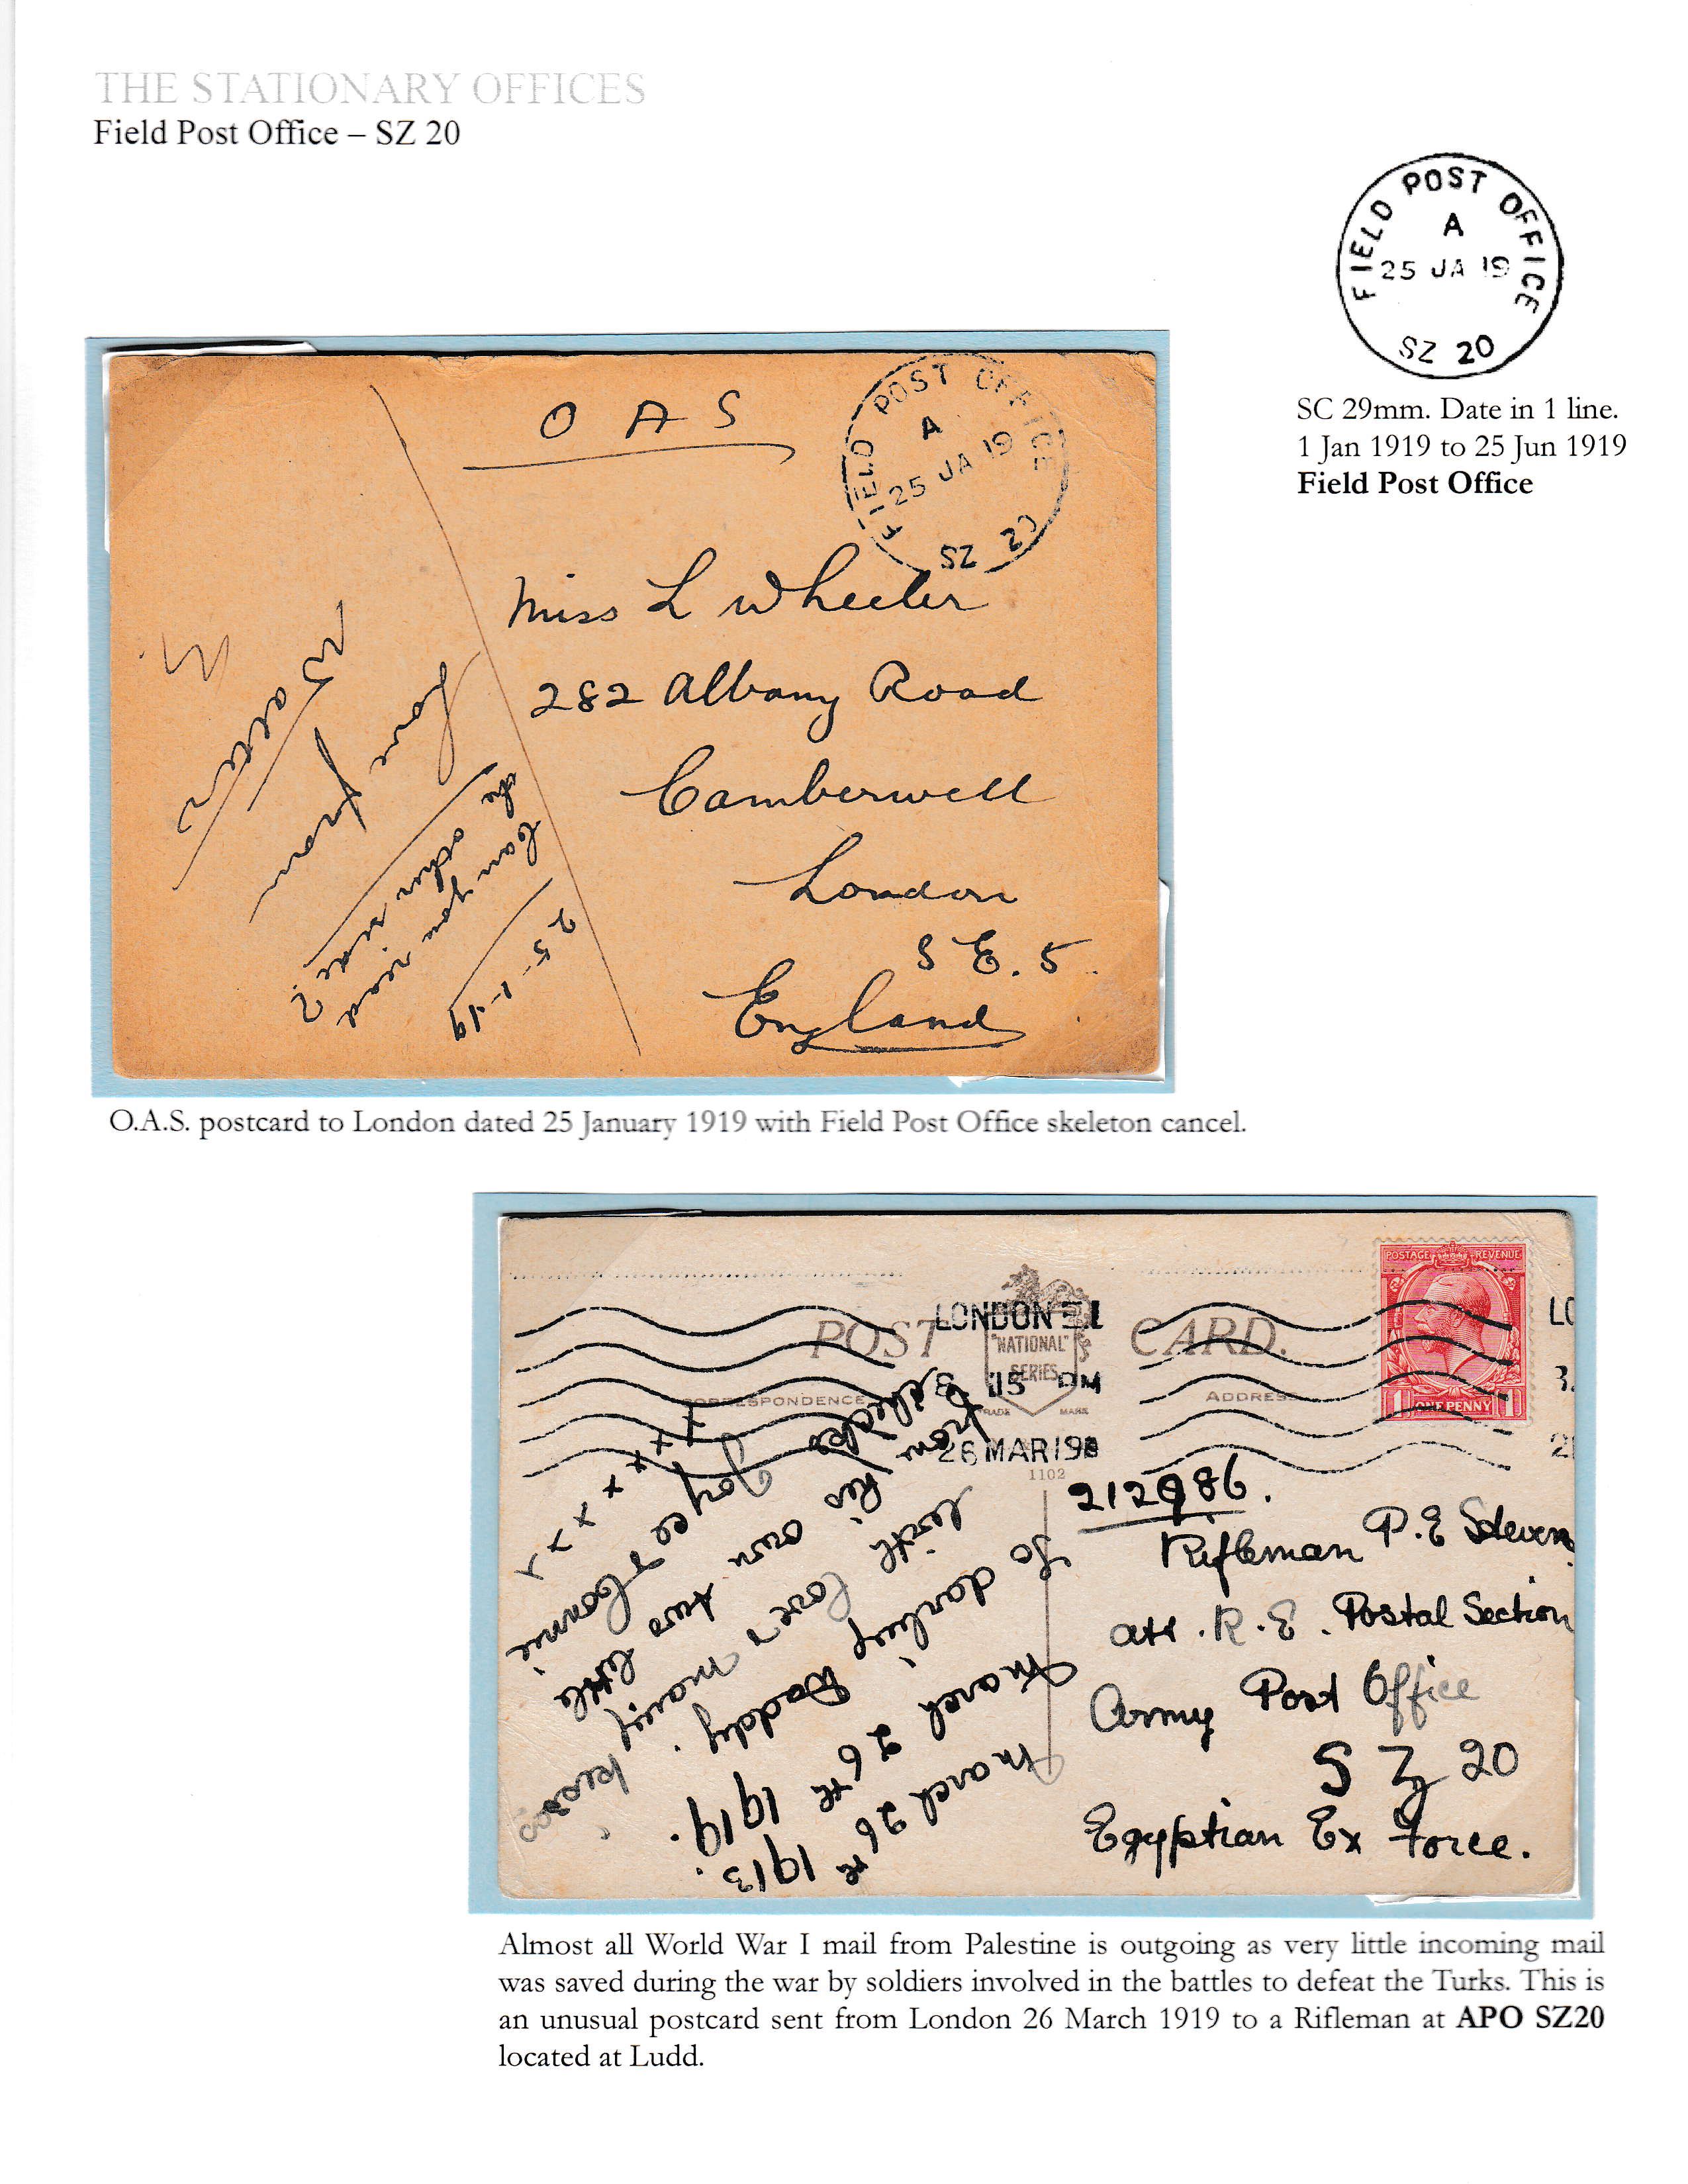 THE STATIONARY OFFICES
Field Post Office – SZ 20
FIELD POST OFFICE
A
25 JA 19
SZ 20
SC 29mm. Date in 1 line.
1 Jan 1919 to 25 Jun 1919
Field Post Office
O A S
FIELD POST OFFICE
A
25 JA 19
SZ 20
Miss L Wheeler
282 Albany Road
Camberwell
London
S E. 5.
England
25-1-19
Can you read
the other side?
Love from
Walter
O.A.S. postcard to London dated 25 January 1919 with Field Post Office skeleton cancel.
POSTAGE REVENUE
ONE PENNY
1 1
LONDON E.1
POST CARD.
"NATIONAL"
SERIES
TRADE MARK
3 15 PM
CORRESPONDENCE
ADDRESS
26 MAR 19
1102
212986.
Rifleman P.E Steven
att. R.E. Postal Section
Army Post Office
S Z 20
Egyptian Ex Force.
March 26th 1913.
March 26th 1919.
To darling Daddy.
with love & many kisses
from his own two little
Joyce & Connie
x x x x x x x
Almost all World War I mail from Palestine is outgoing as very little incoming mail
was saved during the war by soldiers involved in the battles to defeat the Turks. This is
an unusual postcard sent from London 26 March 1919 to a Rifleman at APO SZ20
located at Ludd.